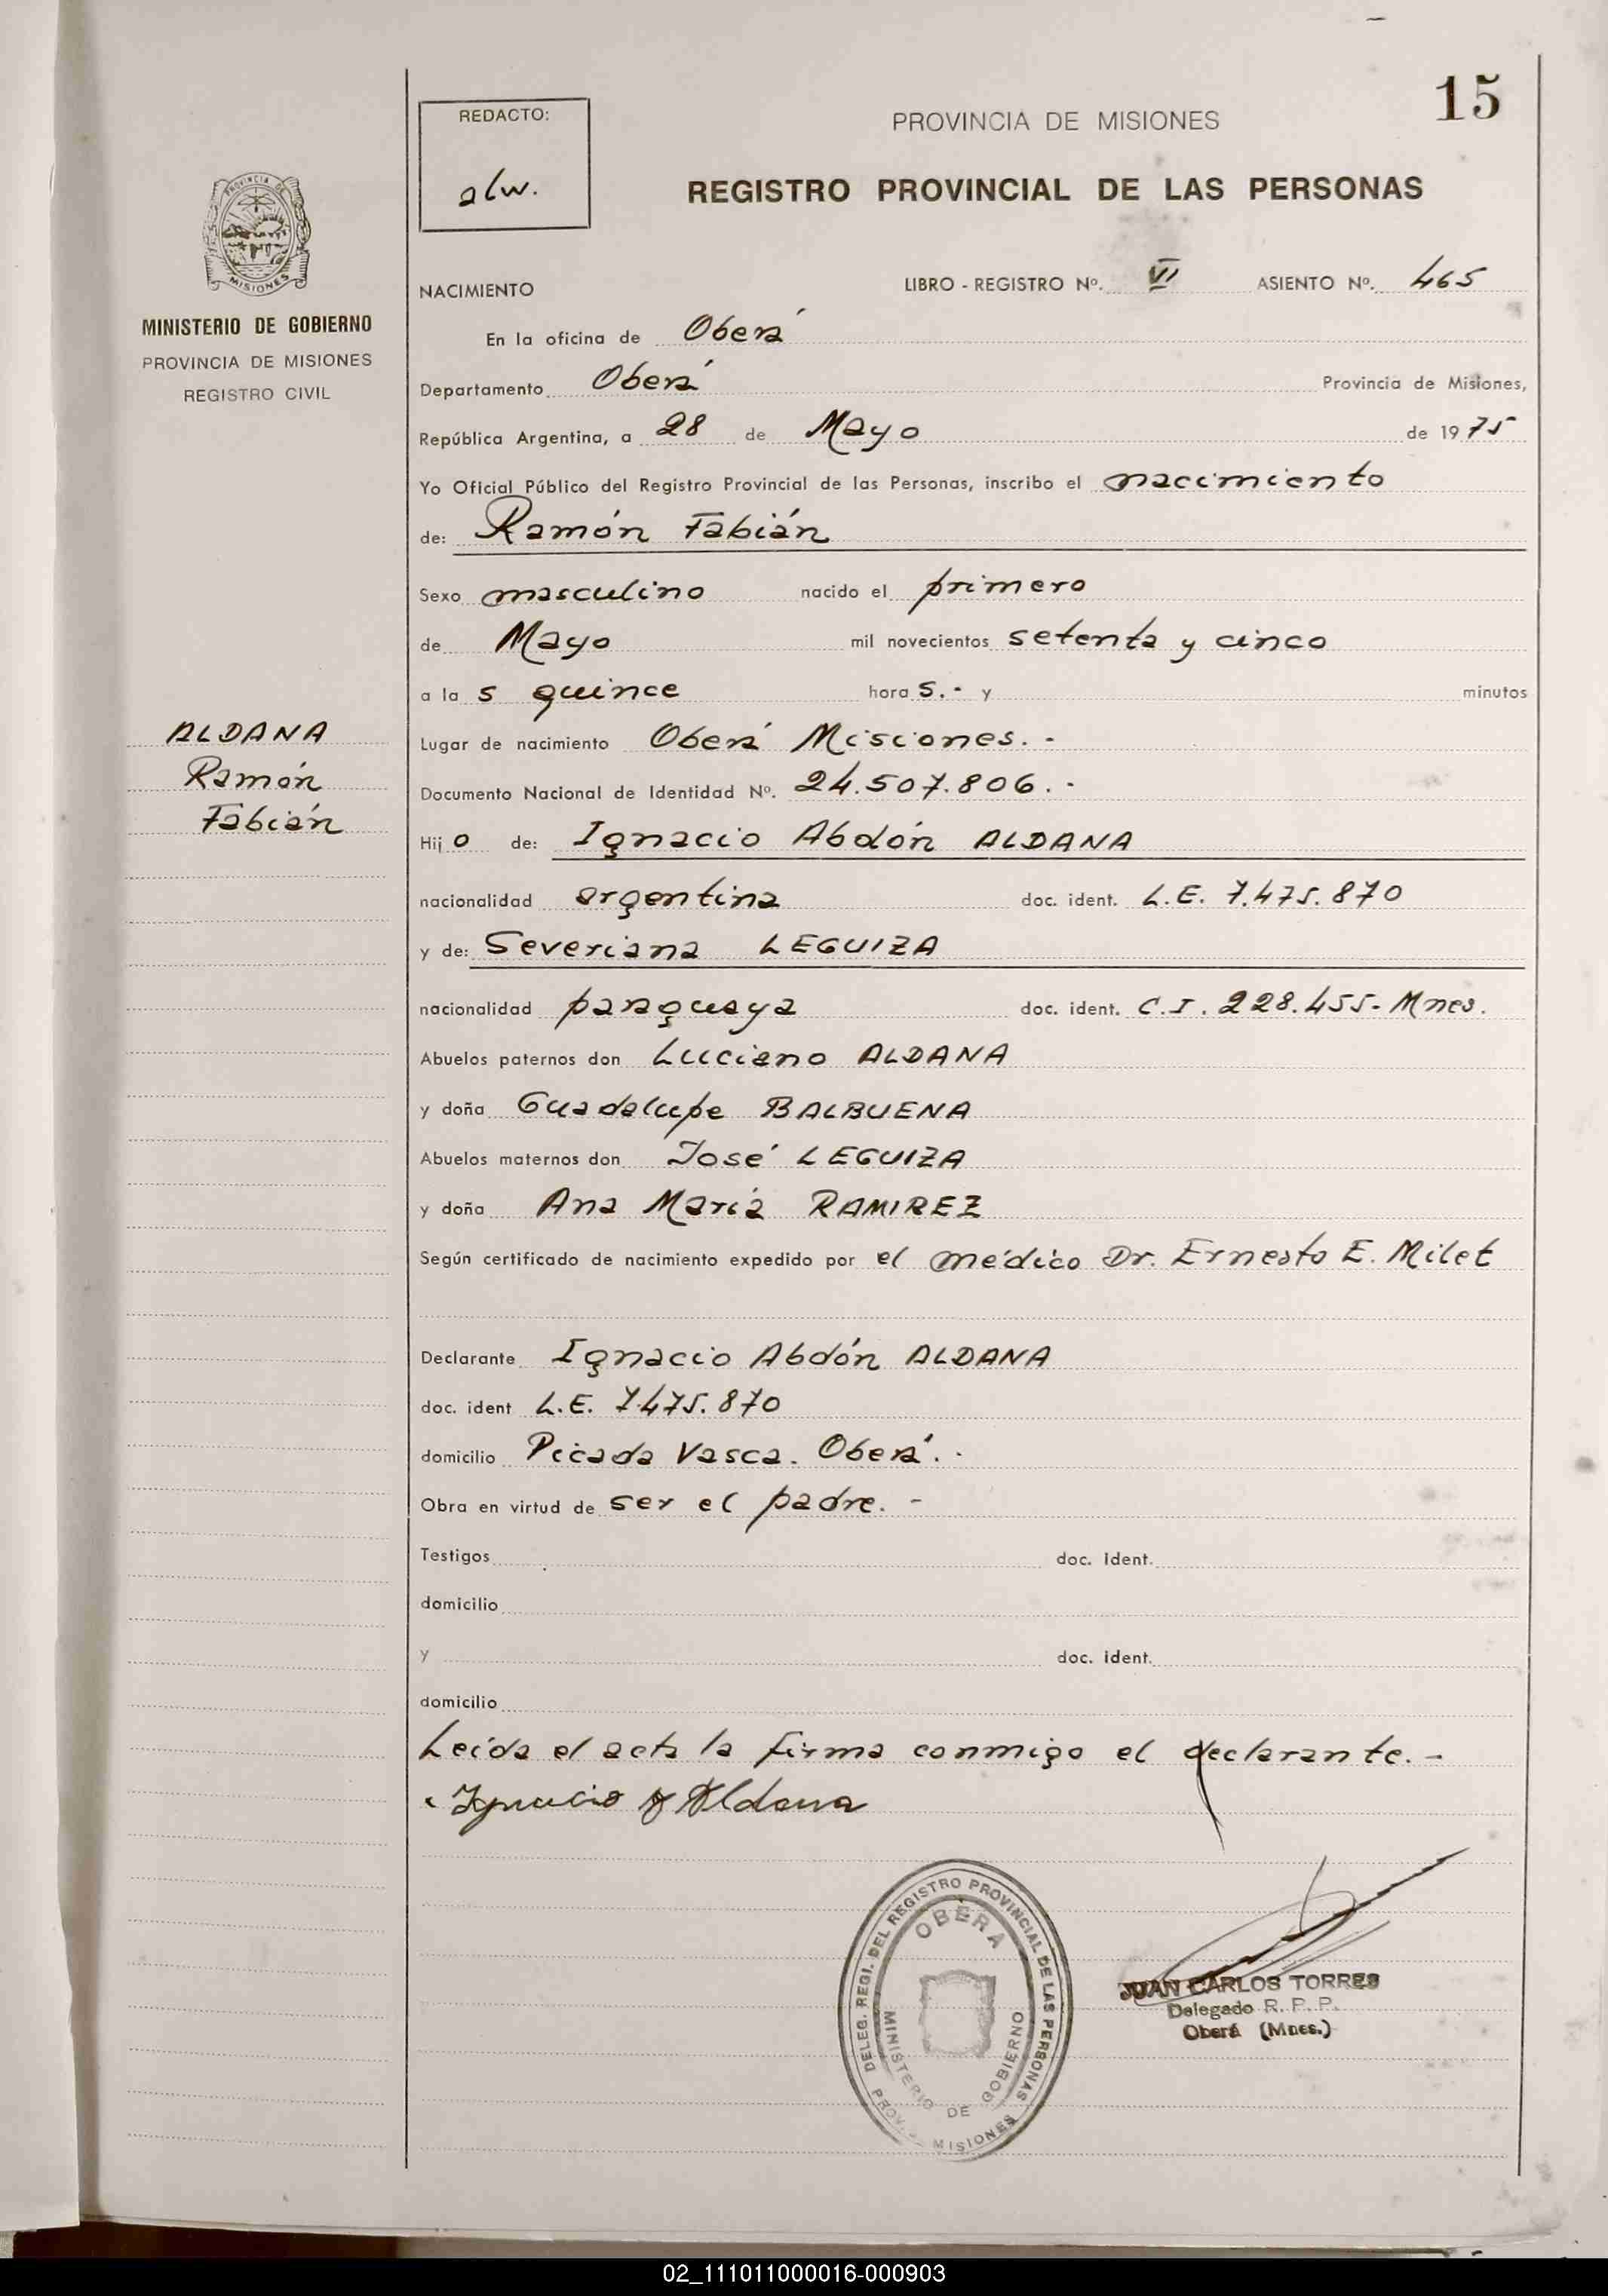 15
REDACTO:
alw.
PROVINCIA DE MISIONES
REGISTRO PROVINCIAL DE LAS PERSONAS
PROVINCIA DE
MISIONES
MINISTERIO DE GOBIERNO
PROVINCIA DE MISIONES
REGISTRO CIVIL
NACIMIENTO LIBRO - REGISTRO Nº. VI ASIENTO Nº. 465
En la oficina de Oberá
Departamento Oberá Provincia de Misiones,
República Argentina, a 28 de Mayo de 1975
Yo Oficial Público del Registro Provincial de las Personas, inscribo el nacimiento
de: Ramón Fabián
Sexo masculino nacido el primero
de Mayo mil novecientos setenta y cinco
a la s quince hora s.- y minutos
ALDANA
Ramón
Fabián
Lugar de nacimiento Oberá Misiones.-
Documento Nacional de Identidad Nº. 24.507.806.-
Hijo de: Ignacio Abdón ALDANA
nacionalidad argentina doc. ident. L.E. 7.475.870
y de: Severiana LEGUIZA
nacionalidad paraguaya doc. ident. C.I. 228.455- Mnes.
Abuelos paternos don Luciano ALDANA
y doña Guadalupe BALBUENA
Abuelos maternos don José LEGUIZA
y doña Ana María RAMIREZ
Según certificado de nacimiento expedido por el médico Dr. Ernesto E. Milet
Declarante Ignacio Abdón ALDANA
doc. ident L.E. 7.475.870
domicilio Picada Vasca. Oberá.-
Obra en virtud de ser el padre.-
Testigos doc. ident.
domicilio
y doc. ident.
domicilio
Leída el acta la firma conmigo el declarante.-
Ignacio A Aldana
DELEG. REGI. DEL REGISTRO PROVINCIAL DE LAS PERSONAS
OBERA
MINISTERIO DE GOBIERNO
PROV. MISIONES
JUAN CARLOS TORRES
Delegado R. P. P.
Oberá (Mnes.)
02_111011000016-000903